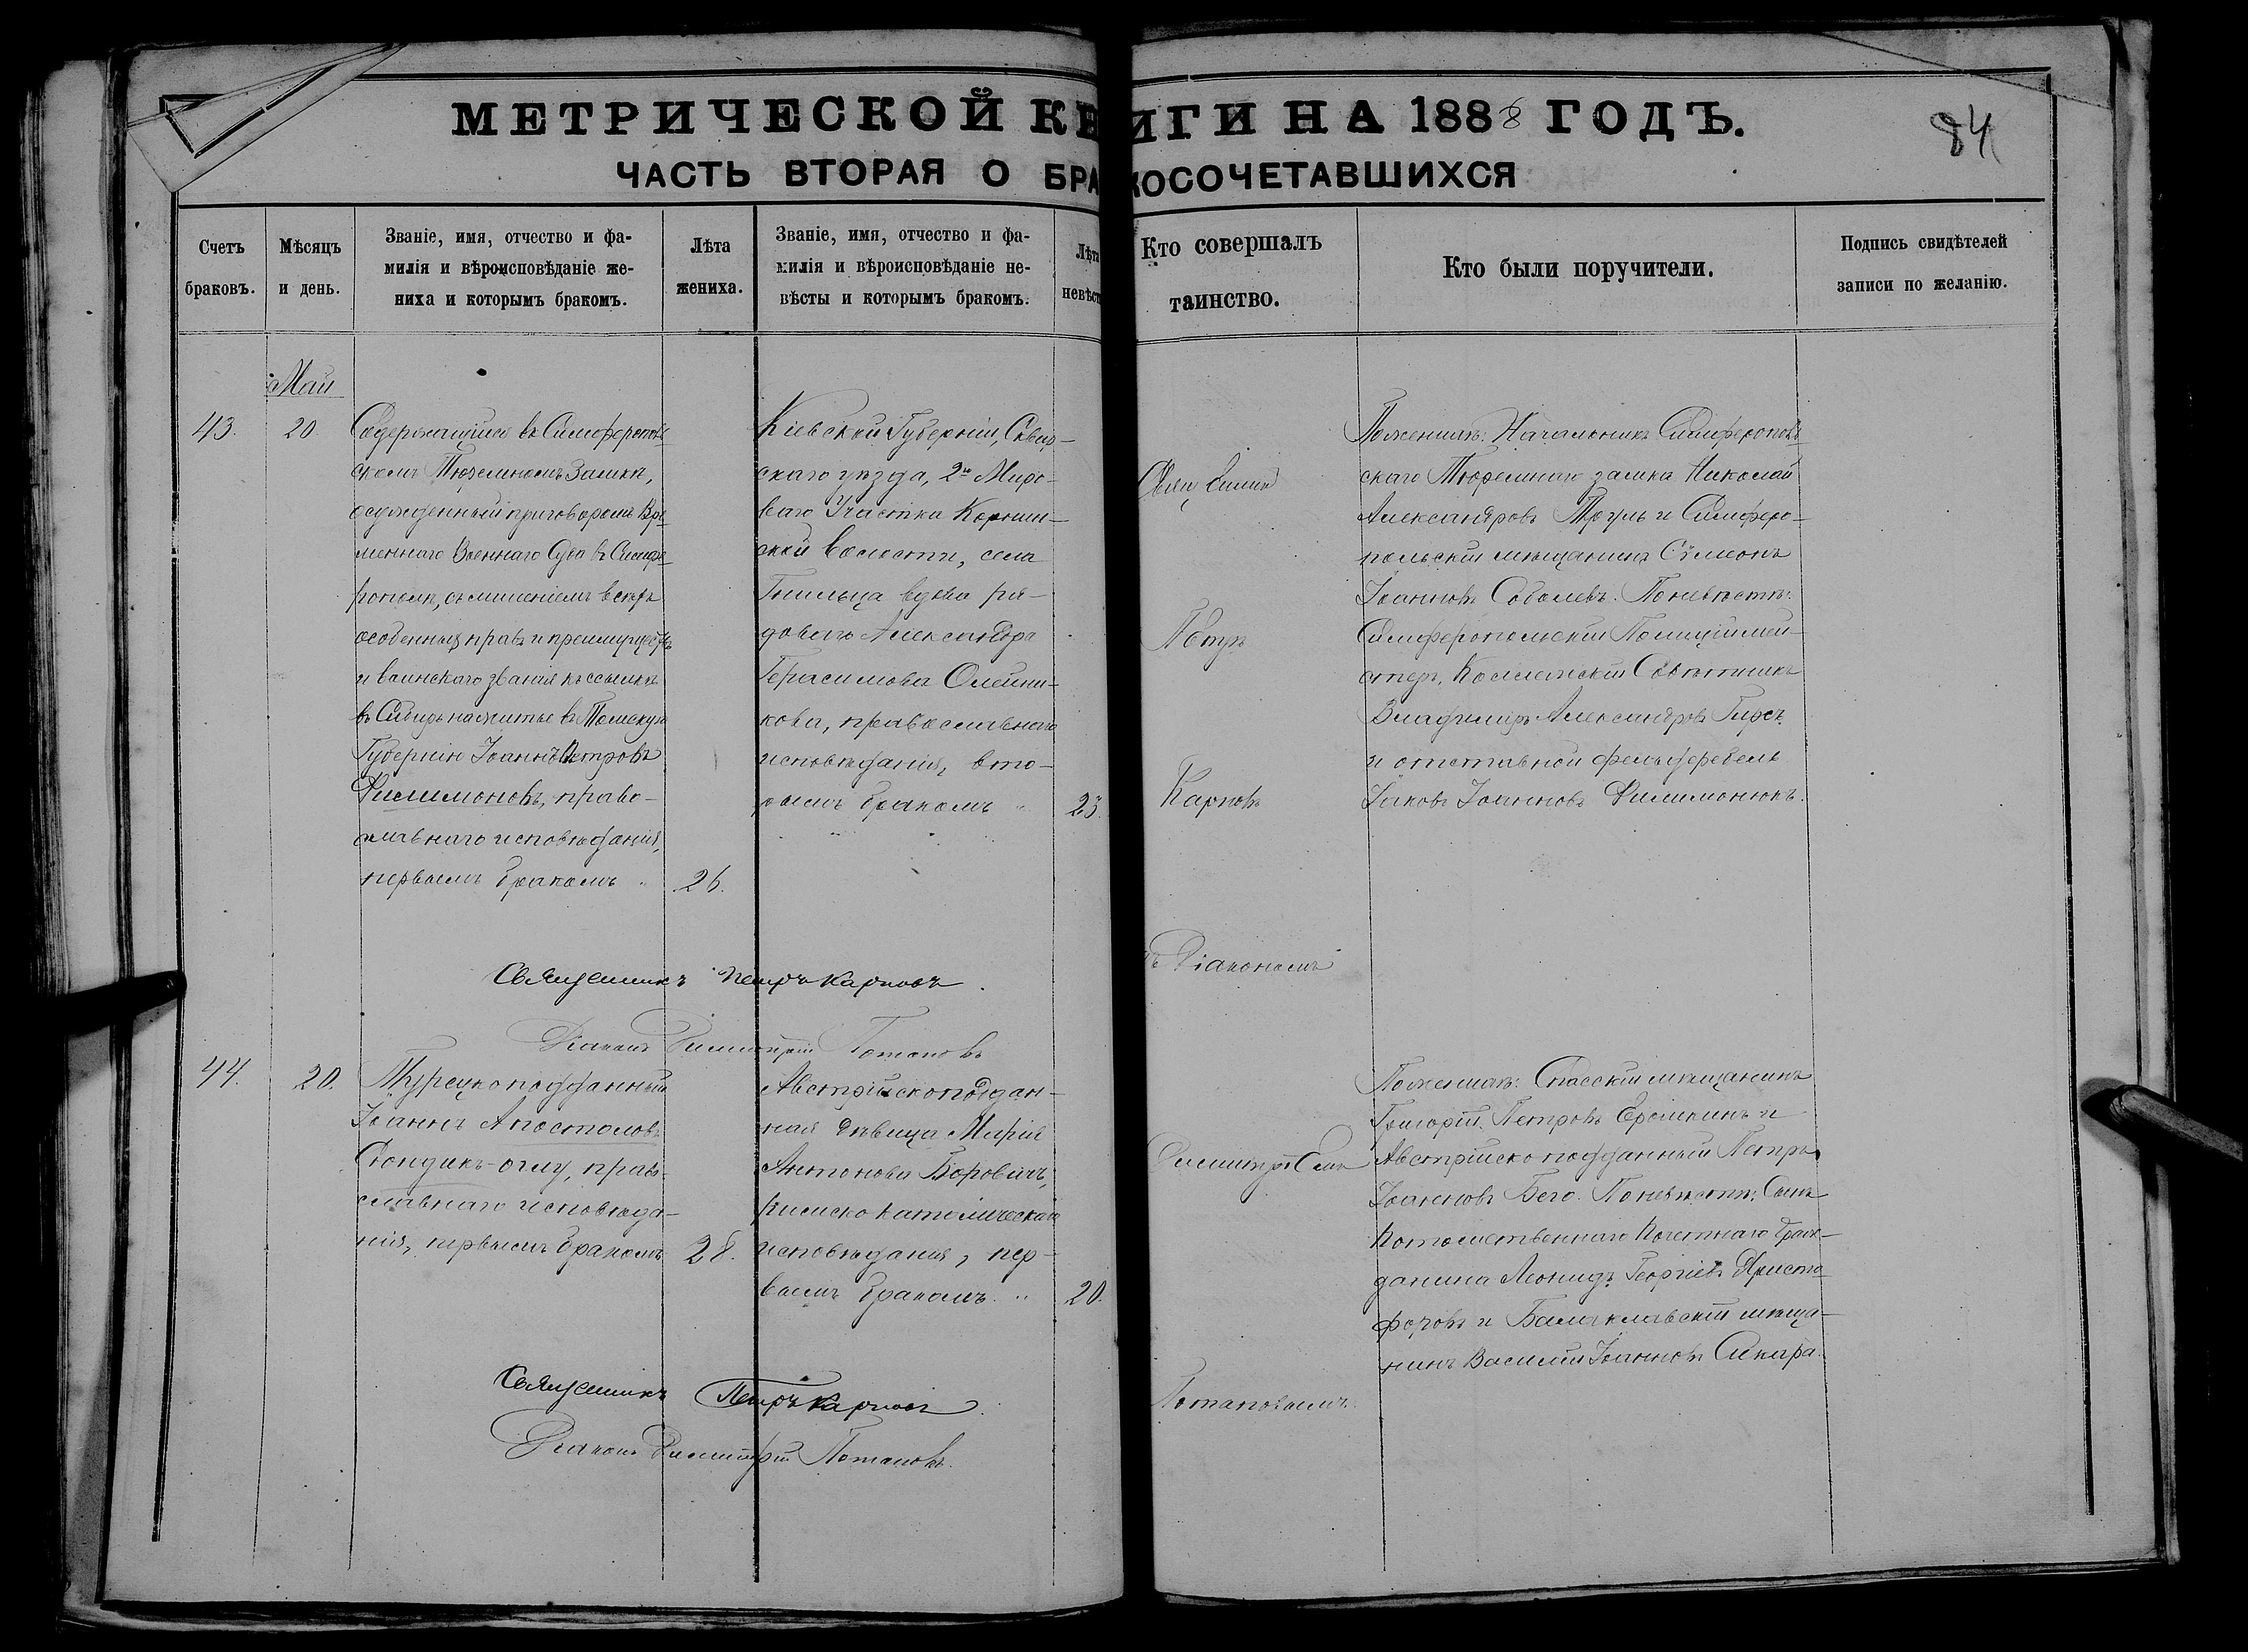 МЕТРИЧЕСКОЙ КНИГИ НА 1888 ГОДЪ.
84
ЧАСТЬ ВТОРАЯ О БРАКОСОЧЕТАВШИХСЯ
Счетъ браковъ.
Мѣсяцъ и день.
Званіе, имя, отчество и фа-
милія и вѣроисповѣданіе же-
ниха и которымъ бракомъ.
Лѣта
жениха.
Званіе, имя, отчество и фа-
милія и вѣроисповѣданіе не-
вѣсты и которымъ бракомъ.
Лѣта
невѣст
Кто совершалъ
таинство.
Кто были поручители.
Подпись свидѣтелей
записи по желанію.
Май
43.
20
Содержащійся въ Симферополь
скомъ Тюремномъ Замкѣ,
осужденный приговоромъ Вре
меннаго Военнаго Суда въ Симфе
рополѣ, съ лишеніемъ всѣхъ
особенныхъ правъ и преимуществъ
и воинскаго званія къ ссылкѣ
въ Сибирь на житье въ Томскую
Губернію Іоаннъ Петровъ
Филимоновъ, право-
славнаго исповѣданія,
первымъ бракомъ "
26.
Кіевской Губерніи, Сквир-
скаго уѣзда, 2го Миро-
ваго Участка
ской волости, села
вдова ря-
доваго Александра
Герасимова Олейни-
кова, православнаго
исповѣданія, вто-
рымъ бракомъ "
23.
Священник
Петръ
Карповъ
ъ Діакономъ
По женихѣ: Начальникъ Симферополь
скаго Тюремнаго замка Николай
Александровъ Тргуль и Симферо-
польскій мѣщанинъ Сѵмеонъ
Іоанновъ Соболевъ. По невѣстѣ:
Симферопольскій Полиціймей-
стеръ, Коллежскій Совѣтникъ
Владиміръ Александровъ Гирсъ
и отставной фельдфебель
Іаковъ Іоанновъ Филимонюкъ.
Священникъ Петръ Карповъ.
Діаконъ Димитрій Потаповъ
44.
20.
Турецкоподданный
Іоаннъ Апостоловъ
оглу, право-
славнаго исповѣда-
нія, первымъ бракомъ
28.
Австрійскоподдан-
ная дѣвица Марія
Антонова Боровичъ,
Римско католическаго
исповѣданія, пер-
вымъ бракомъ "
20.
Димитріем
Потаповымъ.
По женихѣ: Спасскій мѣщанинъ
Григорій Петровъ Ерошкинъ и
Австрійскоподданный Петръ
Іоанновъ Бего. По невѣстѣ: Сынъ
Потомственнаго Почетнаго Граж-
данина Леонидъ Георгіевъ Христо
форовъ и Балаклавскій мѣща-
нинъ Василій Іоанновъ Сикара.
Священникъ Петръ Карповъ.
Діаконъ Димитрій Потаповъ.